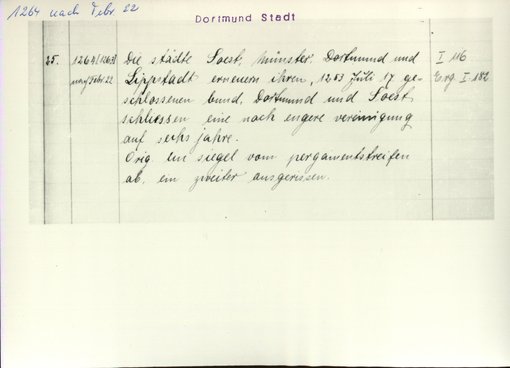 1264 nach Febr 22
Dortmund Stadt
25. 1264/(1263) Die städte Soest, Münster, Dortmund und I 116
nach Febr. 22 Lippstadt erneuern ihren, 1253 Juli 17 ge- Erg I. 182
schlossenen bund, Dortmund und Soest
schliessen eine noch engere vereinigung
auf sechs jahre.
Orig. ein siegel vom pergamentstreifen
ab, ein zweiter ausgerissen.